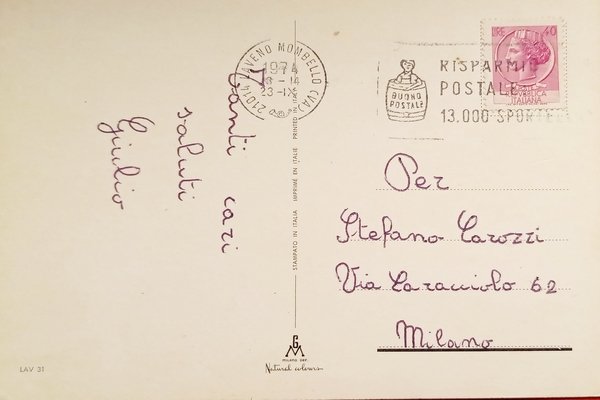 Tanti cari
saluti
Giulio
21014 LAVENO MOMBELLO (VA)
1974
23-IX
BUONO
POSTALE
RISPARMIO
POSTALE
13.000 SPORTE
LIRE 40
ITALIANA
Per
Stefano Carozzi
Via Caracciolo 62
Milano
STAMPATO IN ITALIA IMPRIMÉ EN ITALIE PRINTED IN ITALY
G
M
MILANO
Natural colours
LAV 31